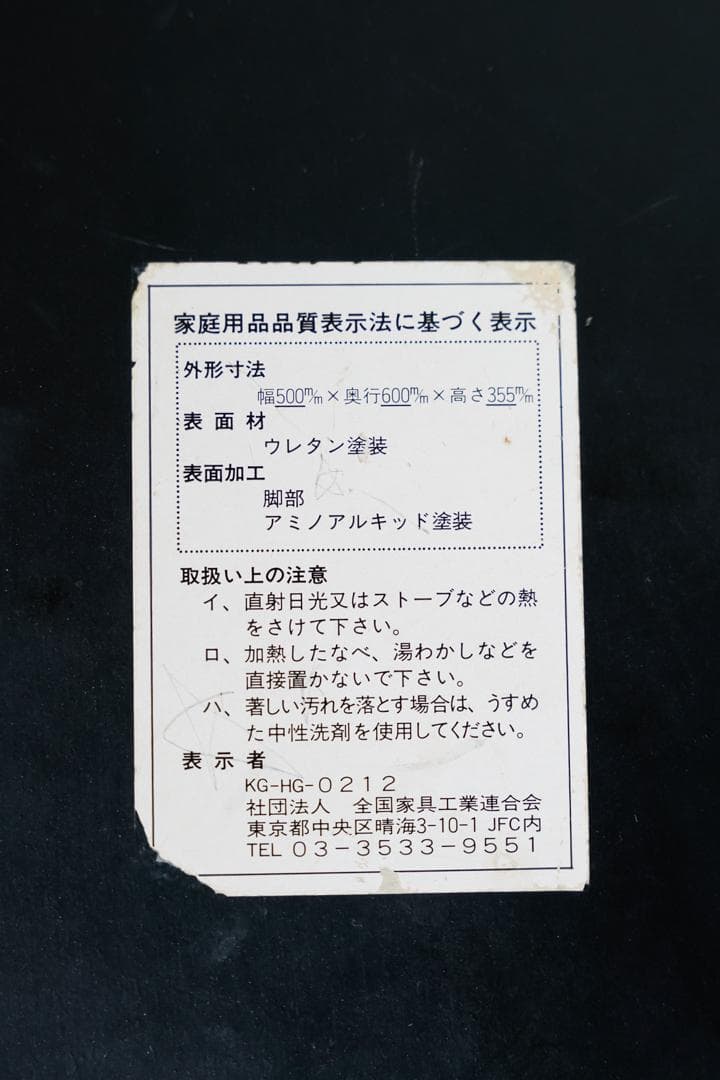 家庭用品品質表示法に基づく表示
外形寸法
幅500m/m×奥行600m/m×高さ355m/m
表面材
ウレタン塗装
表面加工
脚部
アミノアルキッド塗装
取扱い上の注意
イ、直射日光又はストーブなどの熱
をさけて下さい。
ロ、加熱したなべ、湯わかしなどを
直接置かないで下さい。
ハ、著しい汚れを落とす場合は、うすめ
た中性洗剤を使用してください。
表示者
KG-HG-0212
社団法人 全国家具工業連合会
東京都中央区晴海3-10-1 JFC内
TEL 03-3533-9551